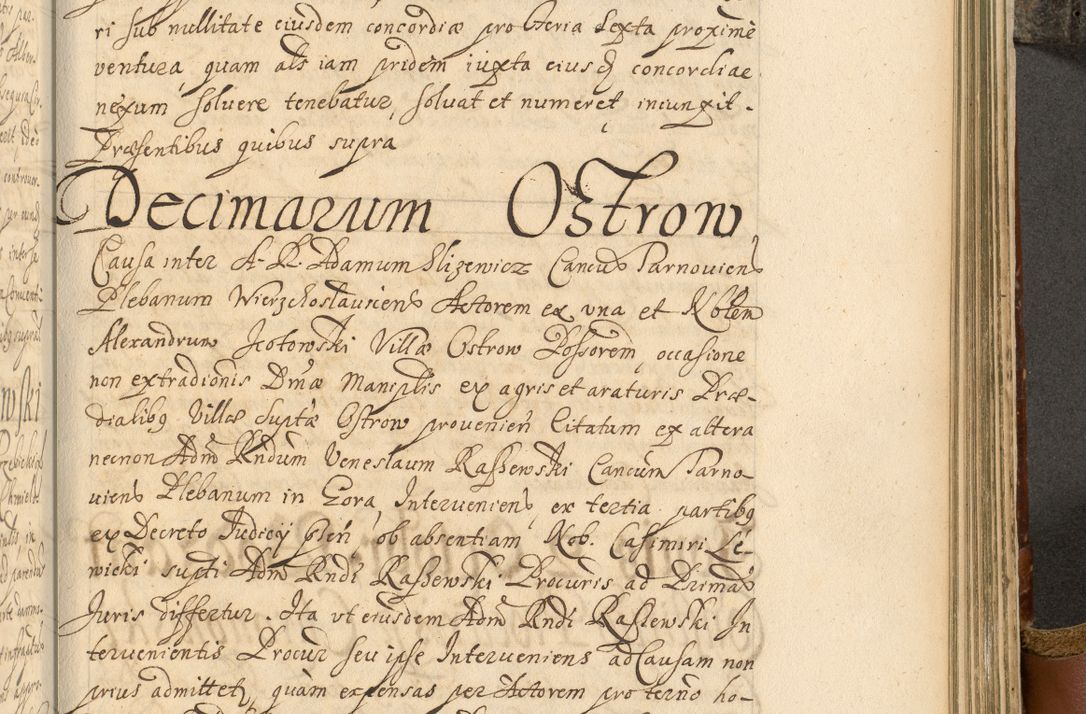 ri sub nullitate eiusdem concordiæ pro Feria Sexta proximè
ventura, quam als iam pridem iuxta eiusq concordiae
nexum soluere tenebatur, soluat et numeret iniunxit.
Præsentibus quibus supra
Decimarum Ostrow
Causa inter A. R. Adamum Slizewicz Cancum Tarnouiens
Plebanum Wierzchoslauiciens Actorem ex vna et Nobilem
Alexandrum Jcotowski Villæ Ostrow Possorem, occasione
non extradionis Dmæ Maniplis ex agris et araturis Præ-
dialibq Villæ Suptæ Ostrow prouenien Citatum ex altera
necnon Adm Rndum Veneslaum Raszewski Cancum Tarno-
uiens Plebanum in Gora, Interueniens, ex tertia partibq
ex Decreto Judicij pſen ob absentiam Nob. Casimiri Le-
wicki supti Adm Rndi Raszewski Procuris ad Primas
Juris differtur. Ita vt eiusdem Adm Rndi Raszewski In
teruenientis Procur seu ipse Interueniens ad Causam non
prius admittetr, quam expensas per Actorem pro termo ho-